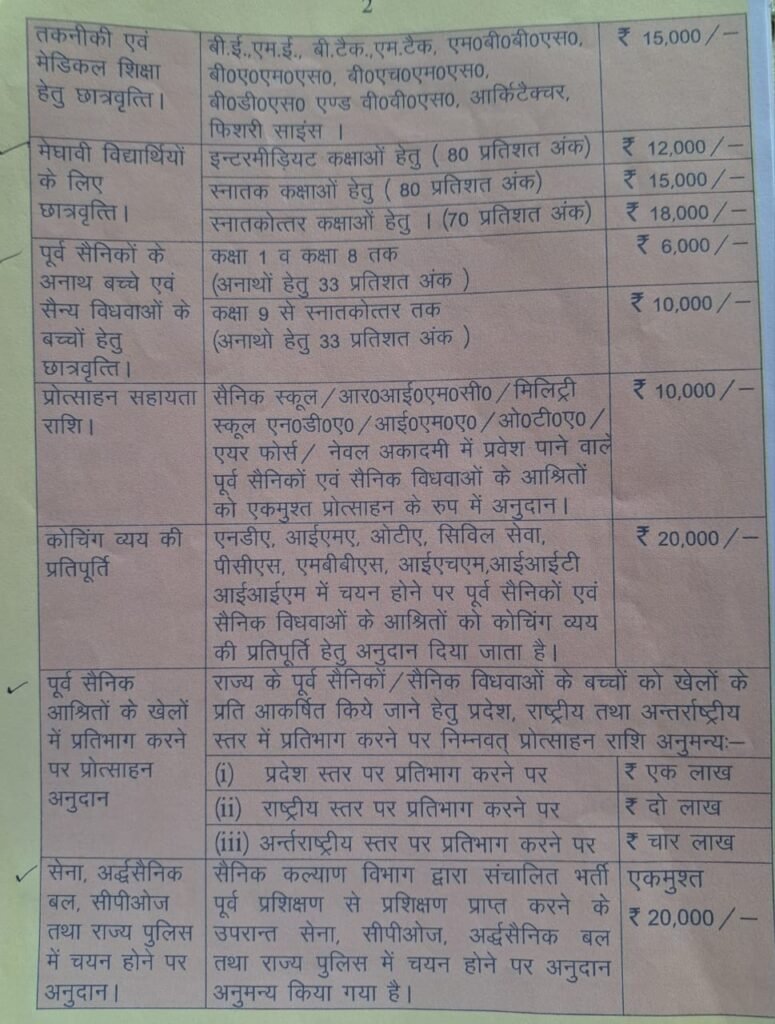 2
तकनीकी एवं
मेडिकल शिक्षा
हेतु छात्रवृत्ति।
बी.ई.,एम.ई., बी.टैक.,एम.टैक, एम0बी0बी0एस0,
बी0ए0एम0एस0, बी0एच0एम0एस0,
बी0डी0एस0 एण्ड वी0वी0एस0, आर्किटैक्चर,
फिशरी साइंस ।
₹ 15,000/–
मेघावी विद्यार्थियों
के लिए
छात्रवृत्ति।
इन्टरमीड़ियट कक्षाओं हेतु ( 80 प्रतिशत अंक)
₹ 12,000/–
स्नातक कक्षाओं हेतु ( 80 प्रतिशत अंक)
₹ 15,000/–
स्नातकोत्तर कक्षाओं हेतु । (70 प्रतिशत अंक)
₹ 18,000/–
पूर्व सैनिकों के
अनाथ बच्चे एवं
सैन्य विधवाओं के
बच्चों हेतु
छात्रवृत्ति।
कक्षा 1 व कक्षा 8 तक
(अनाथों हेतु 33 प्रतिशत अंक )
₹ 6,000/–
कक्षा 9 से स्नातकोत्तर तक
(अनाथो हेतु 33 प्रतिशत अंक )
₹ 10,000/–
प्रोत्साहन सहायता
राशि।
सैनिक स्कूल/आर0आई0एम0सी0/मिलिट्री
स्कूल एन0डी0ए0/आई0एम0ए0/ओ0टी0ए0/
एयर फोर्स/ नेवल अकादमी में प्रवेश पाने वाले
पूर्व सैनिकों एवं सैनिक विधवाओं के आश्रितों
को एकमुश्त प्रोत्साहन के रुप में अनुदान।
₹ 10,000/–
कोचिंग व्यय की
प्रतिपूर्ति
एनडीए, आईएमए, ओटीए, सिविल सेवा,
पीसीएस, एमबीबीएस, आईएचएम,आईआईटी
आईआईएम में चयन होने पर पूर्व सैनिकों एवं
सैनिक विधवाओं के आश्रितों को कोचिंग व्यय
की प्रतिपूर्ति हेतु अनुदान दिया जाता है।
₹ 20,000/–
पूर्व सैनिक
आश्रितों के खेलों
में प्रतिभाग करने
पर प्रोत्साहन
अनुदान
राज्य के पूर्व सैनिकों/सैनिक विधवाओं के बच्चों को खेलों के
प्रति आकर्षित किये जाने हेतु प्रदेश, राष्ट्रीय तथा अन्तर्राष्ट्रीय
स्तर में प्रतिभाग करने पर निम्नवत् प्रोत्साहन राशि अनुमन्यः–
(i) प्रदेश स्तर पर प्रतिभाग करने पर
₹ एक लाख
(ii) राष्ट्रीय स्तर पर प्रतिभाग करने पर
₹ दो लाख
(iii) अर्न्तराष्ट्रीय स्तर पर प्रतिभाग करने पर
₹ चार लाख
सेना, अर्द्धसैनिक
बल, सीपीओज
तथा राज्य पुलिस
में चयन होने पर
अनुदान।
सैनिक कल्याण विभाग द्वारा संचालित भर्ती
पूर्व प्रशिक्षण से प्रशिक्षण प्राप्त करने के
उपरान्त सेना, सीपीओज, अर्द्धसैनिक बल
तथा राज्य पुलिस में चयन होने पर अनुदान
अनुमन्य किया गया है।
एकमुश्त
₹ 20,000/–